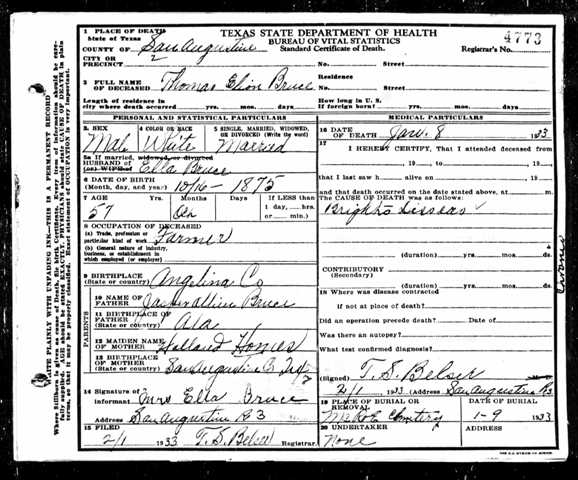 1 PLACE OF DEATH
State of Texas
TEXAS STATE DEPARTMENT OF HEALTH
BUREAU OF VITAL STATISTICS
Standard Certificate of Death.
4773
COUNTY OF San Augustine
Registrar's No.
CITY OR
PRECINCT 2 No. Street
2 FULL NAME
OF DECEASED Thomas Elion Bruce
Residence
No. Street
Length of residence in
city where death occurred yrs. mos. days.
How long in U. S.
if foreign born? yrs. mos. days
PERSONAL AND STATISTICAL PARTICULARS
MEDICAL PARTICULARS
3. SEX
Male
4 COLOR OR RACE
White
5 SINGLE, MARRIED, WIDOWED,
OR DIVORCED (Write the word)
Married
5a If married, widowed, or divorced
HUSBAND OF
(or) WIFE OF Ella Bruce
6 DATE OF BIRTH
(Month, day, and year) 10/16-1875
7 AGE Yrs. Months Days If LESS than
1 day, hrs.
or min.
57
8 OCCUPATION OF DECEASED
(a) Trade, profession or
particular kind of work Farmer
(b) General nature of industry,
business, or establishment in
which employed (or employer)
9 BIRTHPLACE
(State or country) Angelina Co
PARENTS
10 NAME OF
FATHER Bruce
11 BIRTHPLACE OF
FATHER
(State or country) Ala
12 MAIDEN NAME
OF MOTHER Holland Homes
13 BIRTHPLACE
OF MOTHER
(State or country) San Augustine Co Tex
14 Signature of
informant Mrs Ella Bruce
Address San Augustine R 3
15 FILED 2/1 1933 T. S. Belser Registrar
16 DATE
OF DEATH Jan. 8 1933
17 I HEREBY CERTIFY, That I attended deceased
from
19 to 19
that I last saw h alive on 19
and that death occurred on the date stated above, at m.
The CAUSE OF DEATH was as follows:
Brights
Chronic
(duration) yrs. mos. ds.
CONTRIBUTORY
(Secondary)
(duration) yrs. mos. ds.
18 Where was disease contracted
if not at place of death?
Did an operation precede death? Date of
Was there an autopsy?
What test confirmed diagnosis?
(Signed) T. S. Belser
2/1 1933 Address San Augustine R3
19 PLACE OF BURIAL OR
REMOVAL
DATE OF BURIAL
Cemetery 1-9 1933
20 UNDERTAKER
None
ADDRESS
WRITE PLAINLY WITH UNFADING INK—THIS IS A PERMANENT RECORD